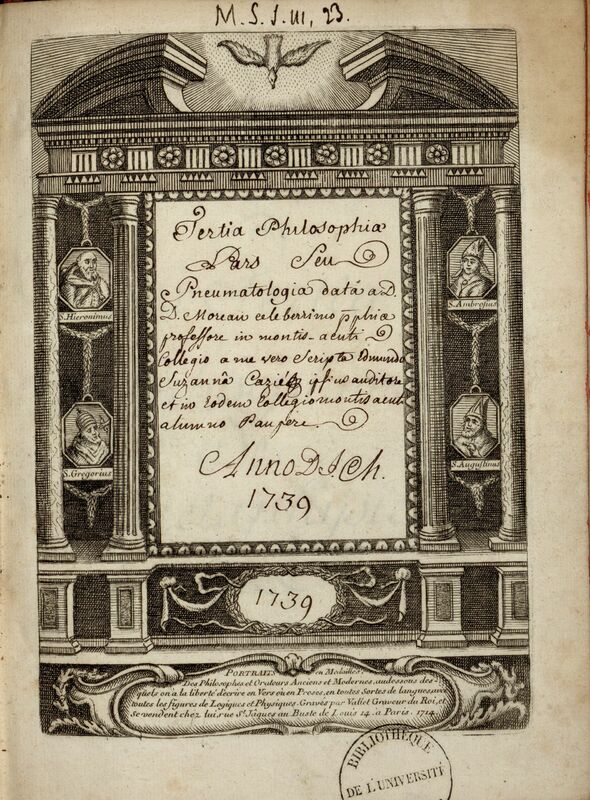 M.S.S. III, 23.
Tertia Philosophiæ
Pars Seu
Pneumatologia data a D.
D. Moreau celeberrimo pphiæ
professore in montis-acuti
Collegio a me vero Scripta Edmundo
Suzannâ ipsius auditore
et in Eodem Collegio montis acuti
alumno Paupere.
Anno D. J. Ch.
1739
S. Hieronimus
S. Ambrosius
S. Gregorius
S. Augustinus
1739
PORTRAITS en Medailles,
Des Philosophes et Orateurs Anciens et Modernes, audessous des-
quels on a la liberté d'écrire en Vers ou en Proses, en toutes Sortes de langues, avec
toutes les figures de Logiques et Physiques. Gravés par Vallet Graveur du Roi, et
Se vendent chez lui, rue St. Jâques au Buste de Louis 14. a Paris. 1714.
BIBLIOTHEQUE
DE L'UNIVERSITÉ